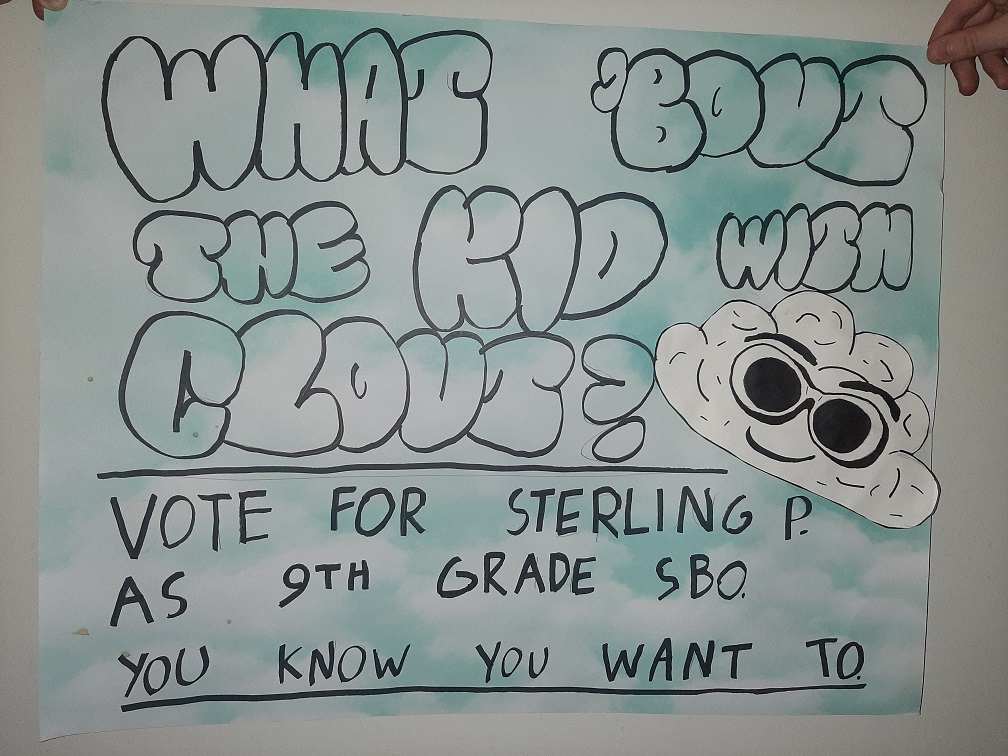 WHAT 'BOUT
THE KID WITH
CLOUT?
VOTE FOR STERLING P.
AS 9TH GRADE SBO.
YOU KNOW YOU WANT TO.